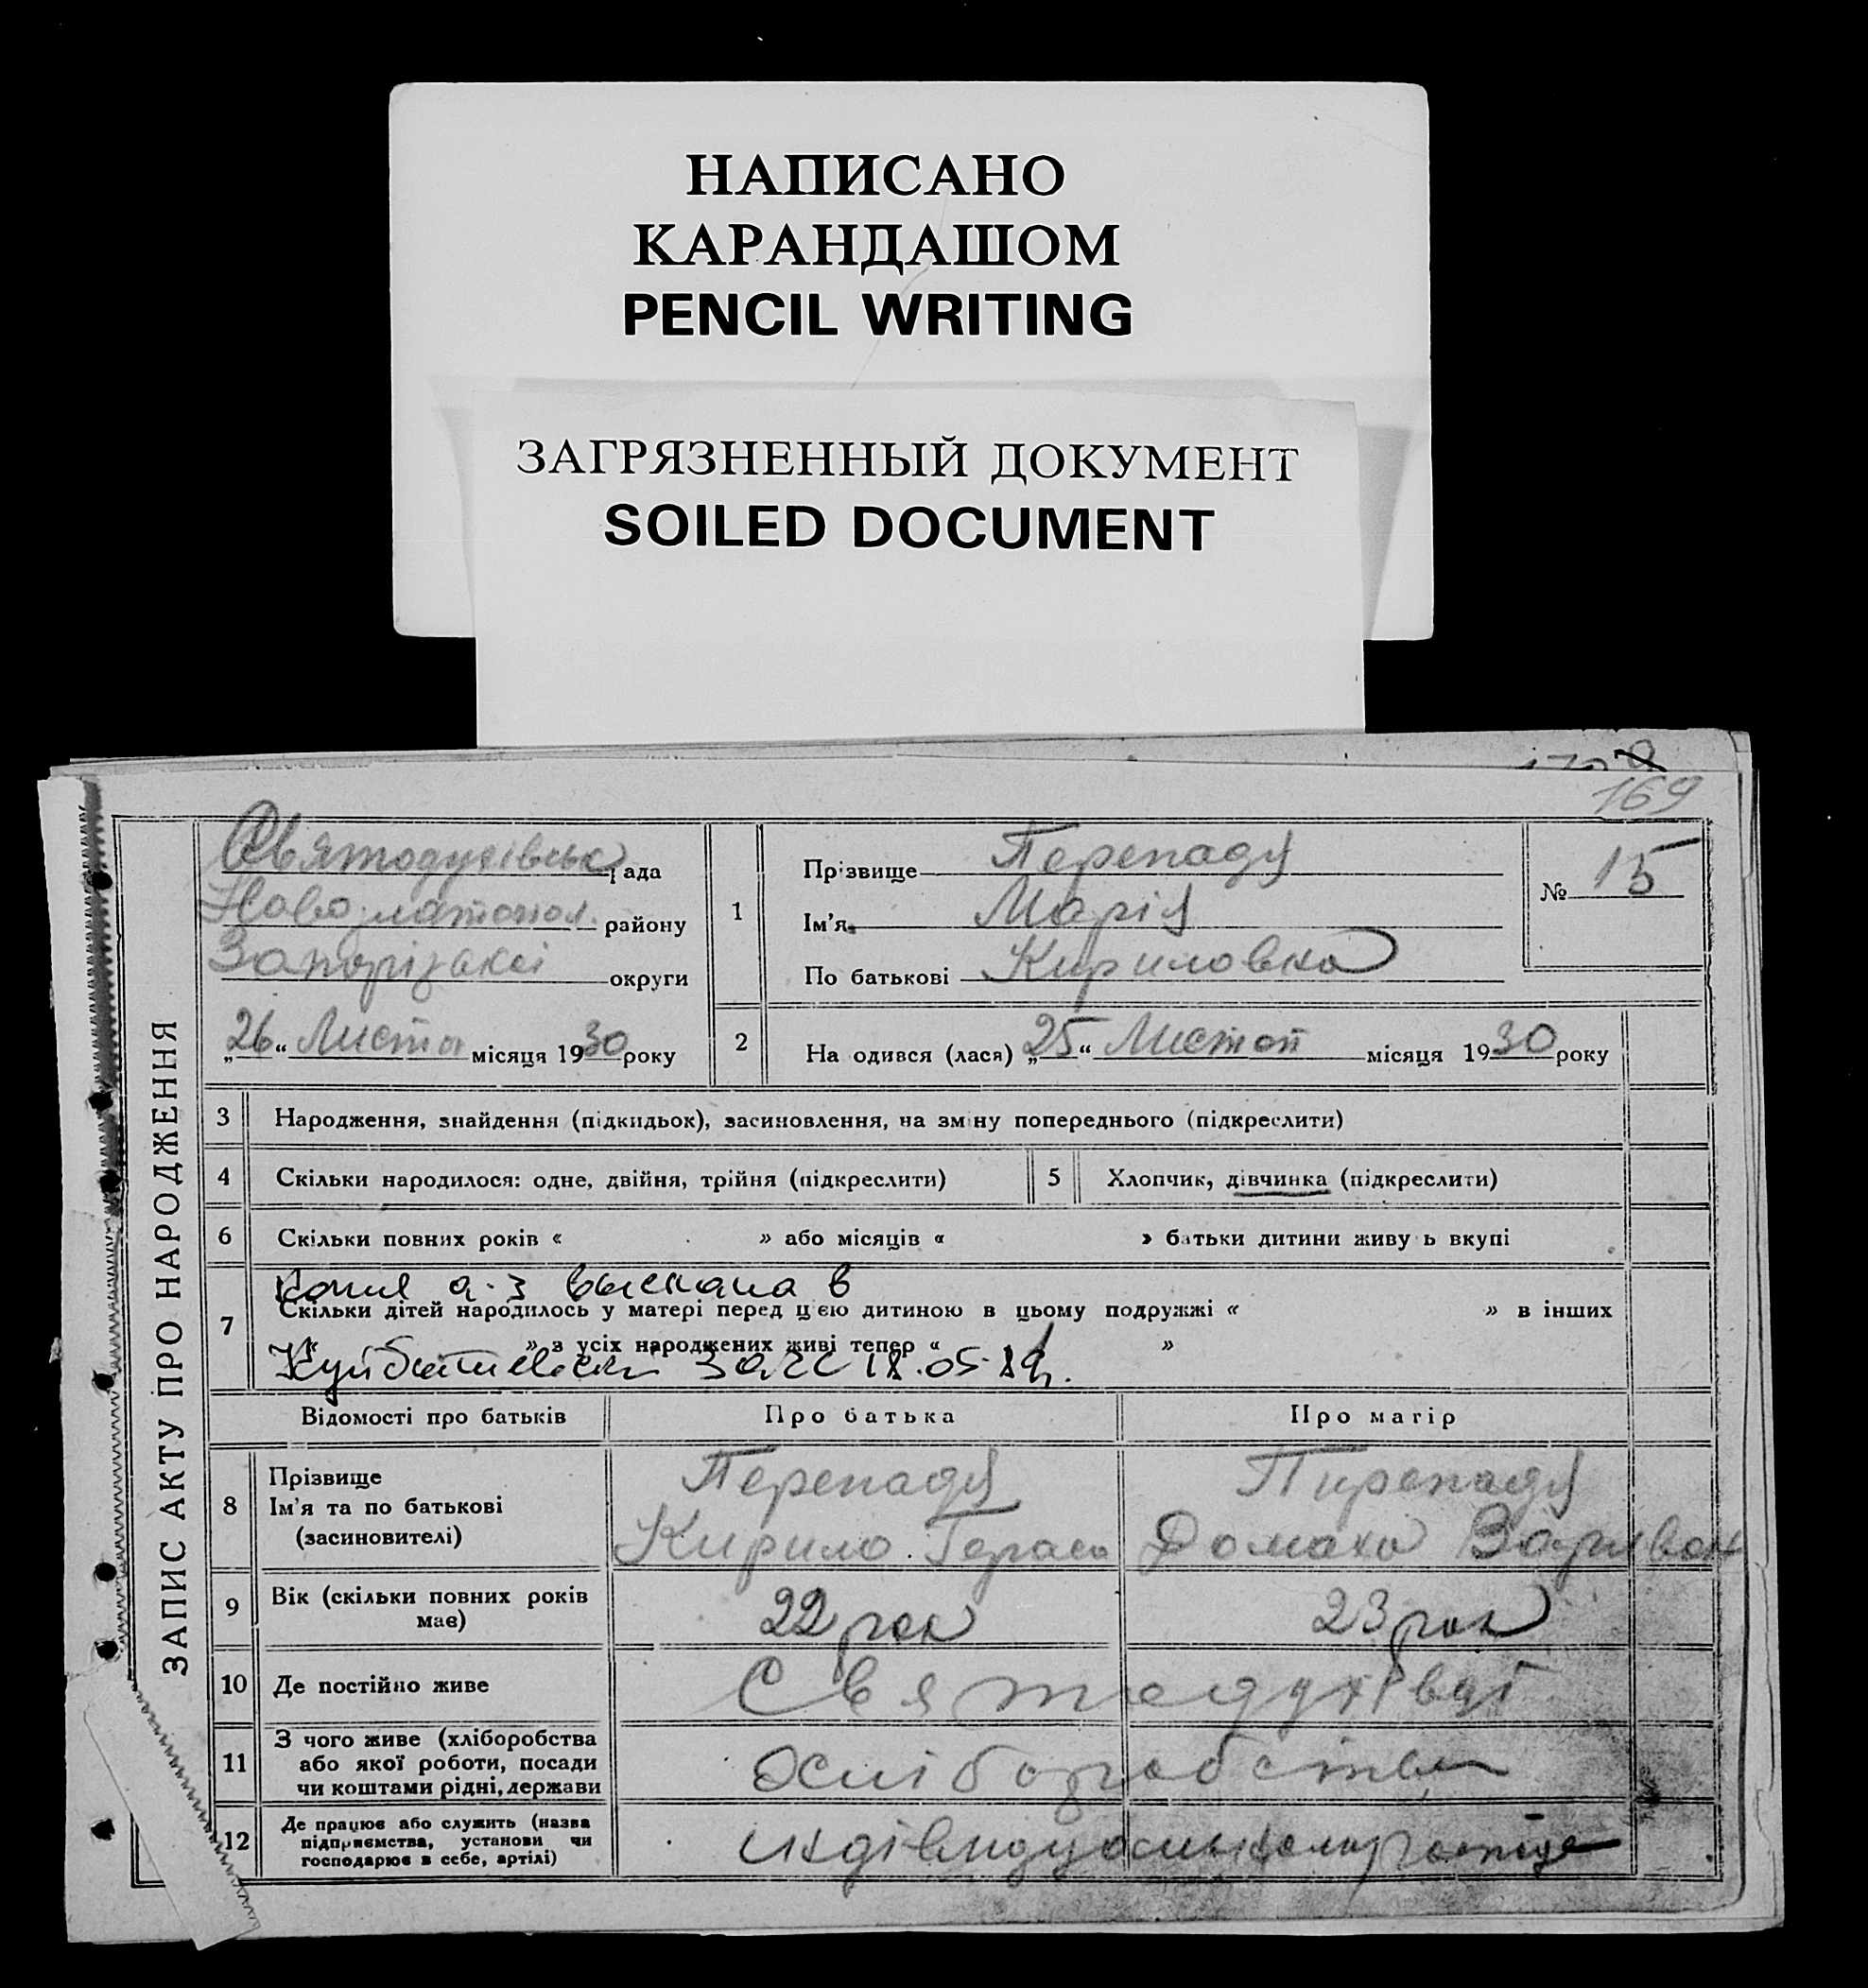 НАПИСАНО
КАРАНДАШОМ
PENCIL WRITING
ЗАГРЯЗНЕННЫЙ ДОКУМЕНТ
SOILED DOCUMENT
169
ЗАПИС АКТУ ПРО НАРОДЖЕННЯ
Святодухівськ рада
Новозлатопол. району
Запорізькій округи
„26“ Листа місяця 1930 року
1
Прізвище Перепадя
Ім'я Марія
По батькові Кириловна
№ 15
2
На одився (лася) „25“ Листоп місяця 1930 року
3 Народження, знайдення (підкидьок), засиновлення, на зміну попереднього (підкреслити)
4 Скільки народилося: одне, двійня, трійня (підкреслити)
5 Хлопчик, дівчинка (підкреслити)
6 Скільки повних років « » або місяців « » батьки дитини живуь вкупі
Копия а-з выслана в
7 Скільки дітей народилось у матері перед цією дитиною в цьому подружжі « » в інших
« » з усіх народжених живі тепер « »
ЗАГС 18.05.89г.
Відомості про батьків Про батька Про матір
8 Прізвище
Ім'я та по батькові
(засиновителі)
Перепадя
Кирило Гераса
Пирепадя
Домаха Варивон
9 Вік (скільки повних років
має)
22 рок
23 рок
10 Де постійно живе
Святодухівці
11 З чого живе (хліборобства
або якої роботи, посади
чи коштами рідні, держави
Хліборобство
12 Де працює або служить (назва
підприємства, установи чи
господарює в себе, артілі)